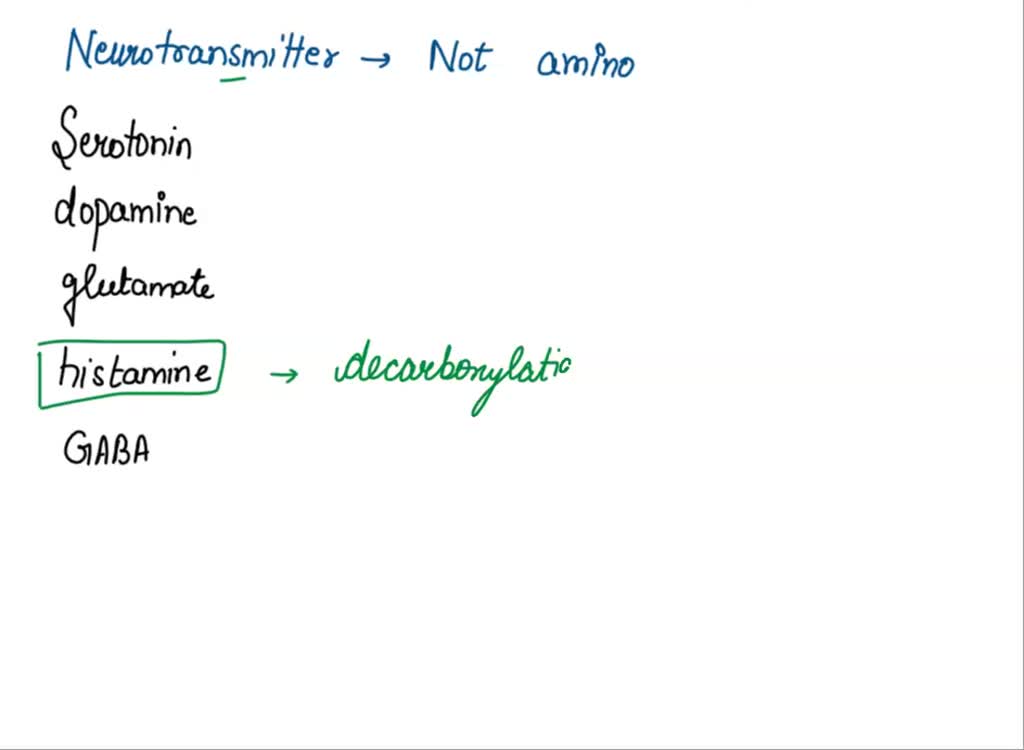 Neurotransmitter → Not amino
Serotonin
dopamine
glutamate
histamine → decarboxylatio
GABA